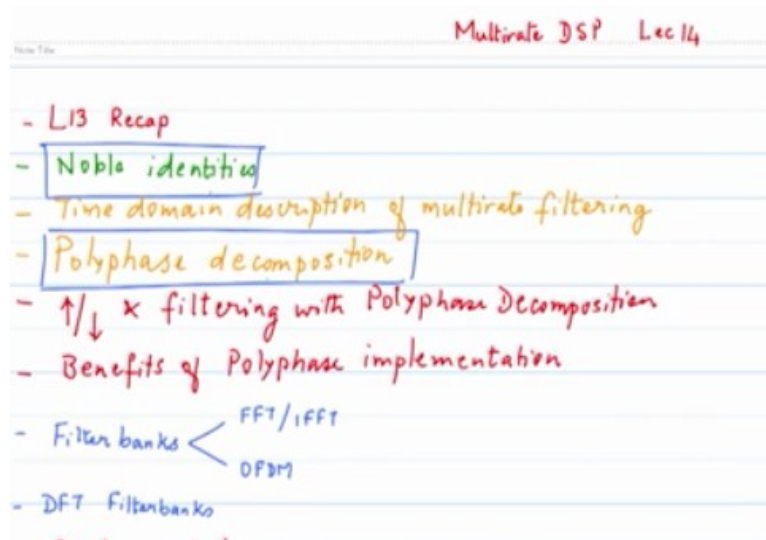 Multirate DSP Lec 14
Note Title
- L13 Recap
- Noble identities
- Time domain description of multirate filtering
- Polyphase decomposition
- ↑/↓ x filtering with Polyphase Decomposition
- Benefits of Polyphase implementation
- Filter banks < FFT/IFFT
OFDM
- DFT Filterbanks